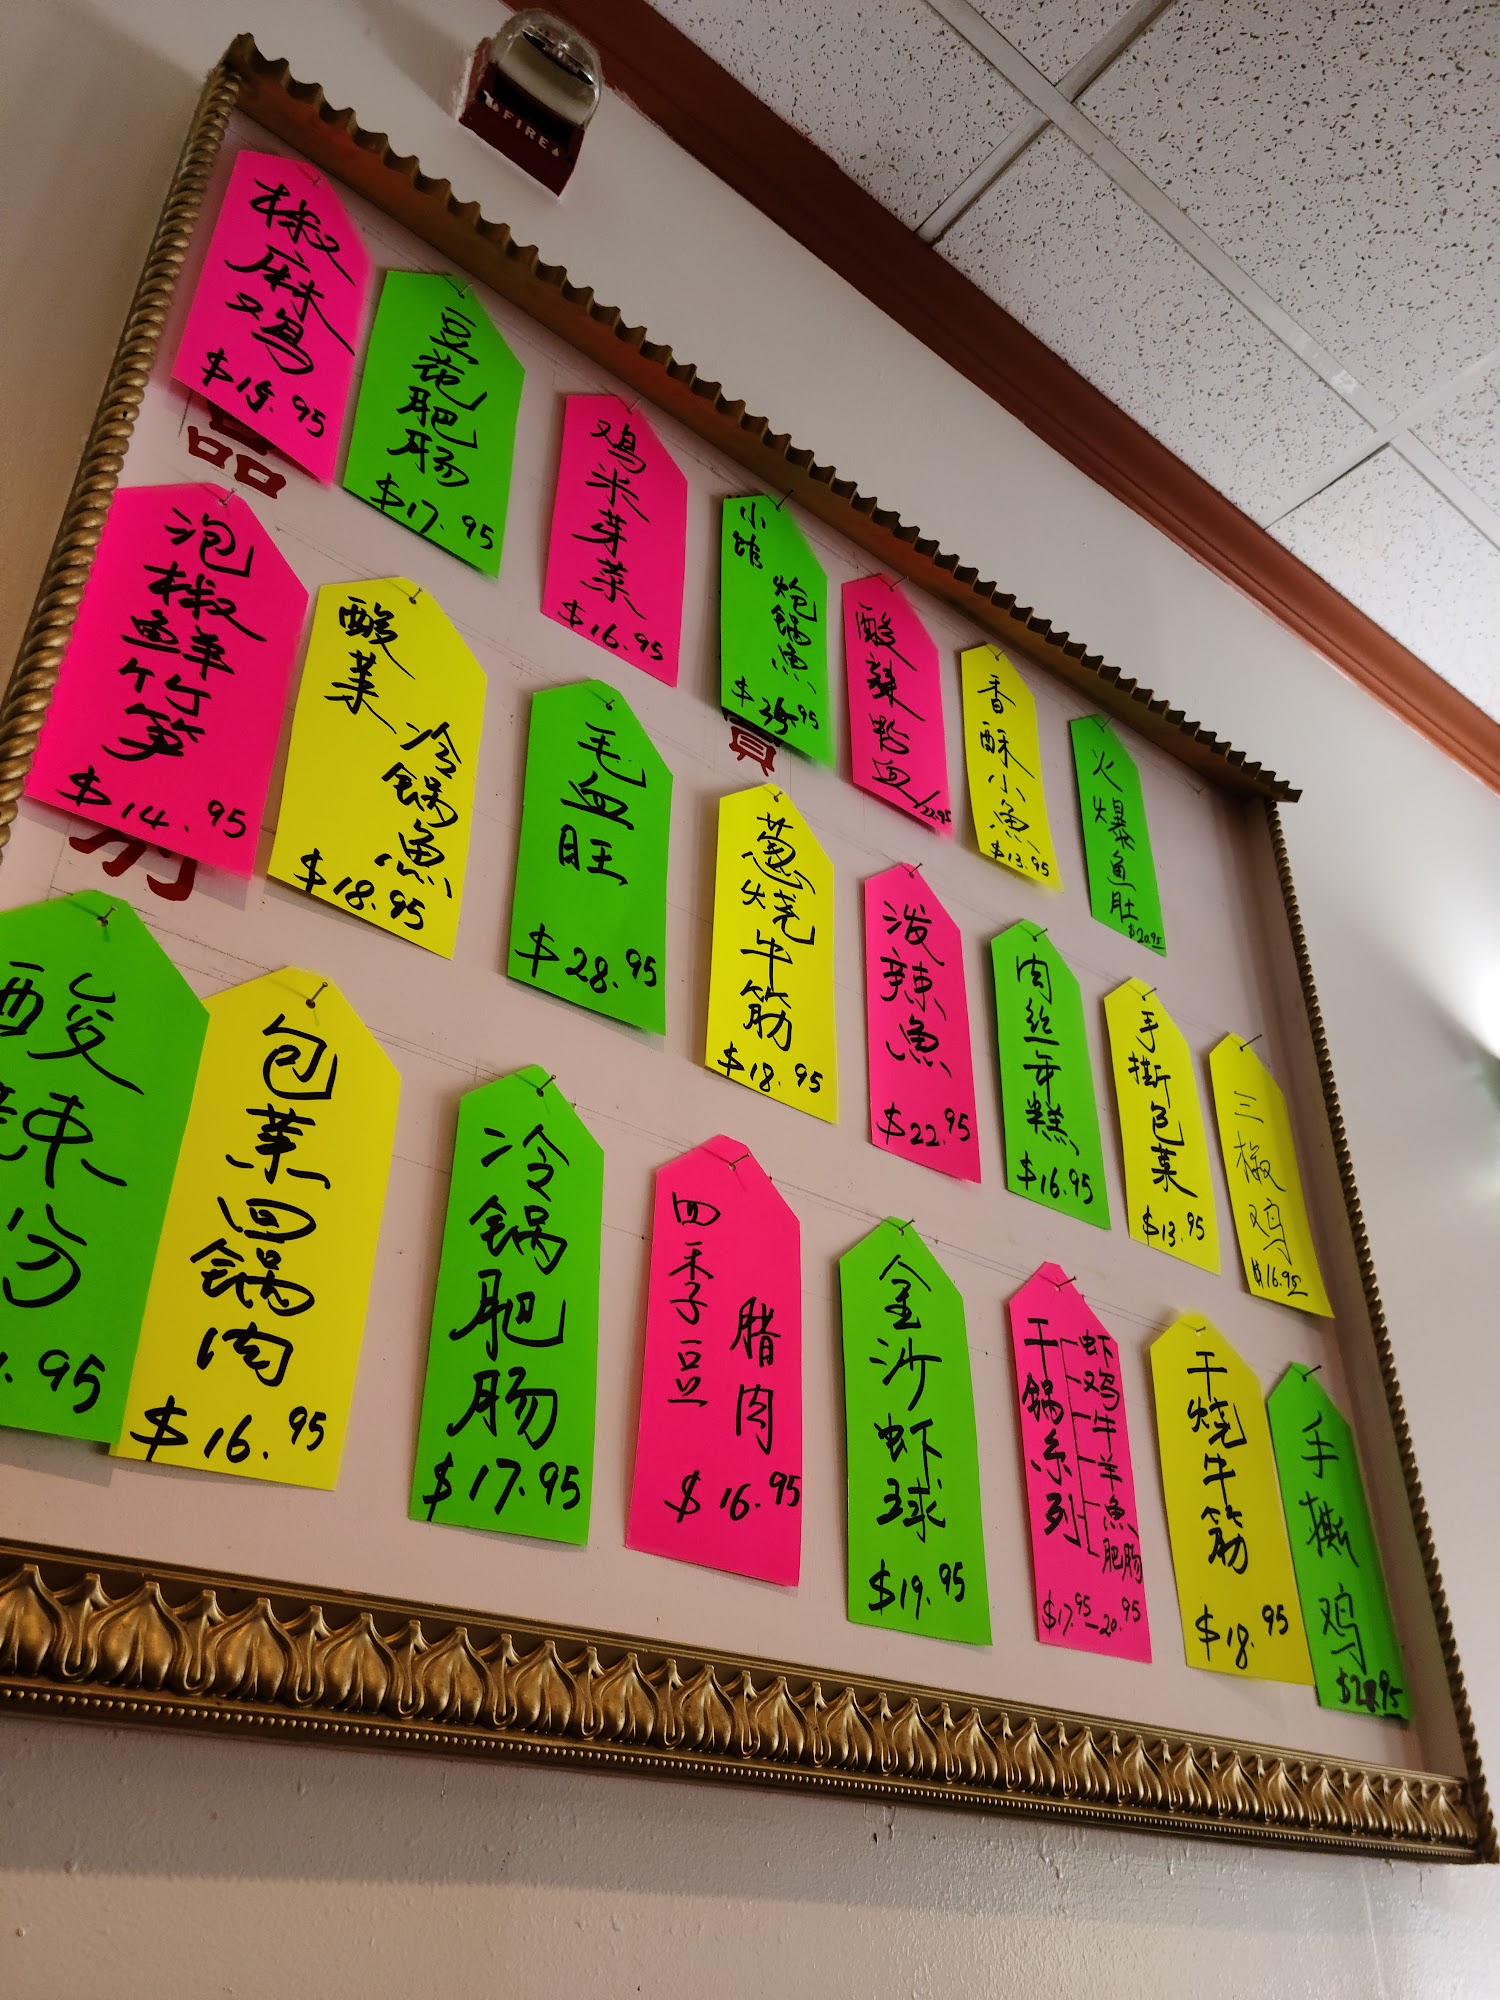 FIRE
椒麻鸡
$15.95
豆花肥肠
$17.95
鸡米芽菜
$16.95
小炒
炝锅鱼
$35.95
酸辣鸭血
22.95
香酥小魚
$13.95
火爆鱼肚
$20.95
品
泡椒鲜竹笋
$14.95
酸菜
冷锅魚
$18.95
毛血旺
$28.95
葱烧牛筋
$18.95
泼辣魚
$22.95
肉丝年糕
$16.95
手撕包菜
$13.95
三椒鸡
$16.95
酸辣粉
.95
包菜回锅肉
$16.95
冷锅肥肠
$17.95
四季豆
腊肉
$16.95
金沙虾球
$19.95
干锅系列
虾
鸡
牛
羊
魚
肥肠
$17.95-20.95
干烧牛筋
$18.95
手撕鸡